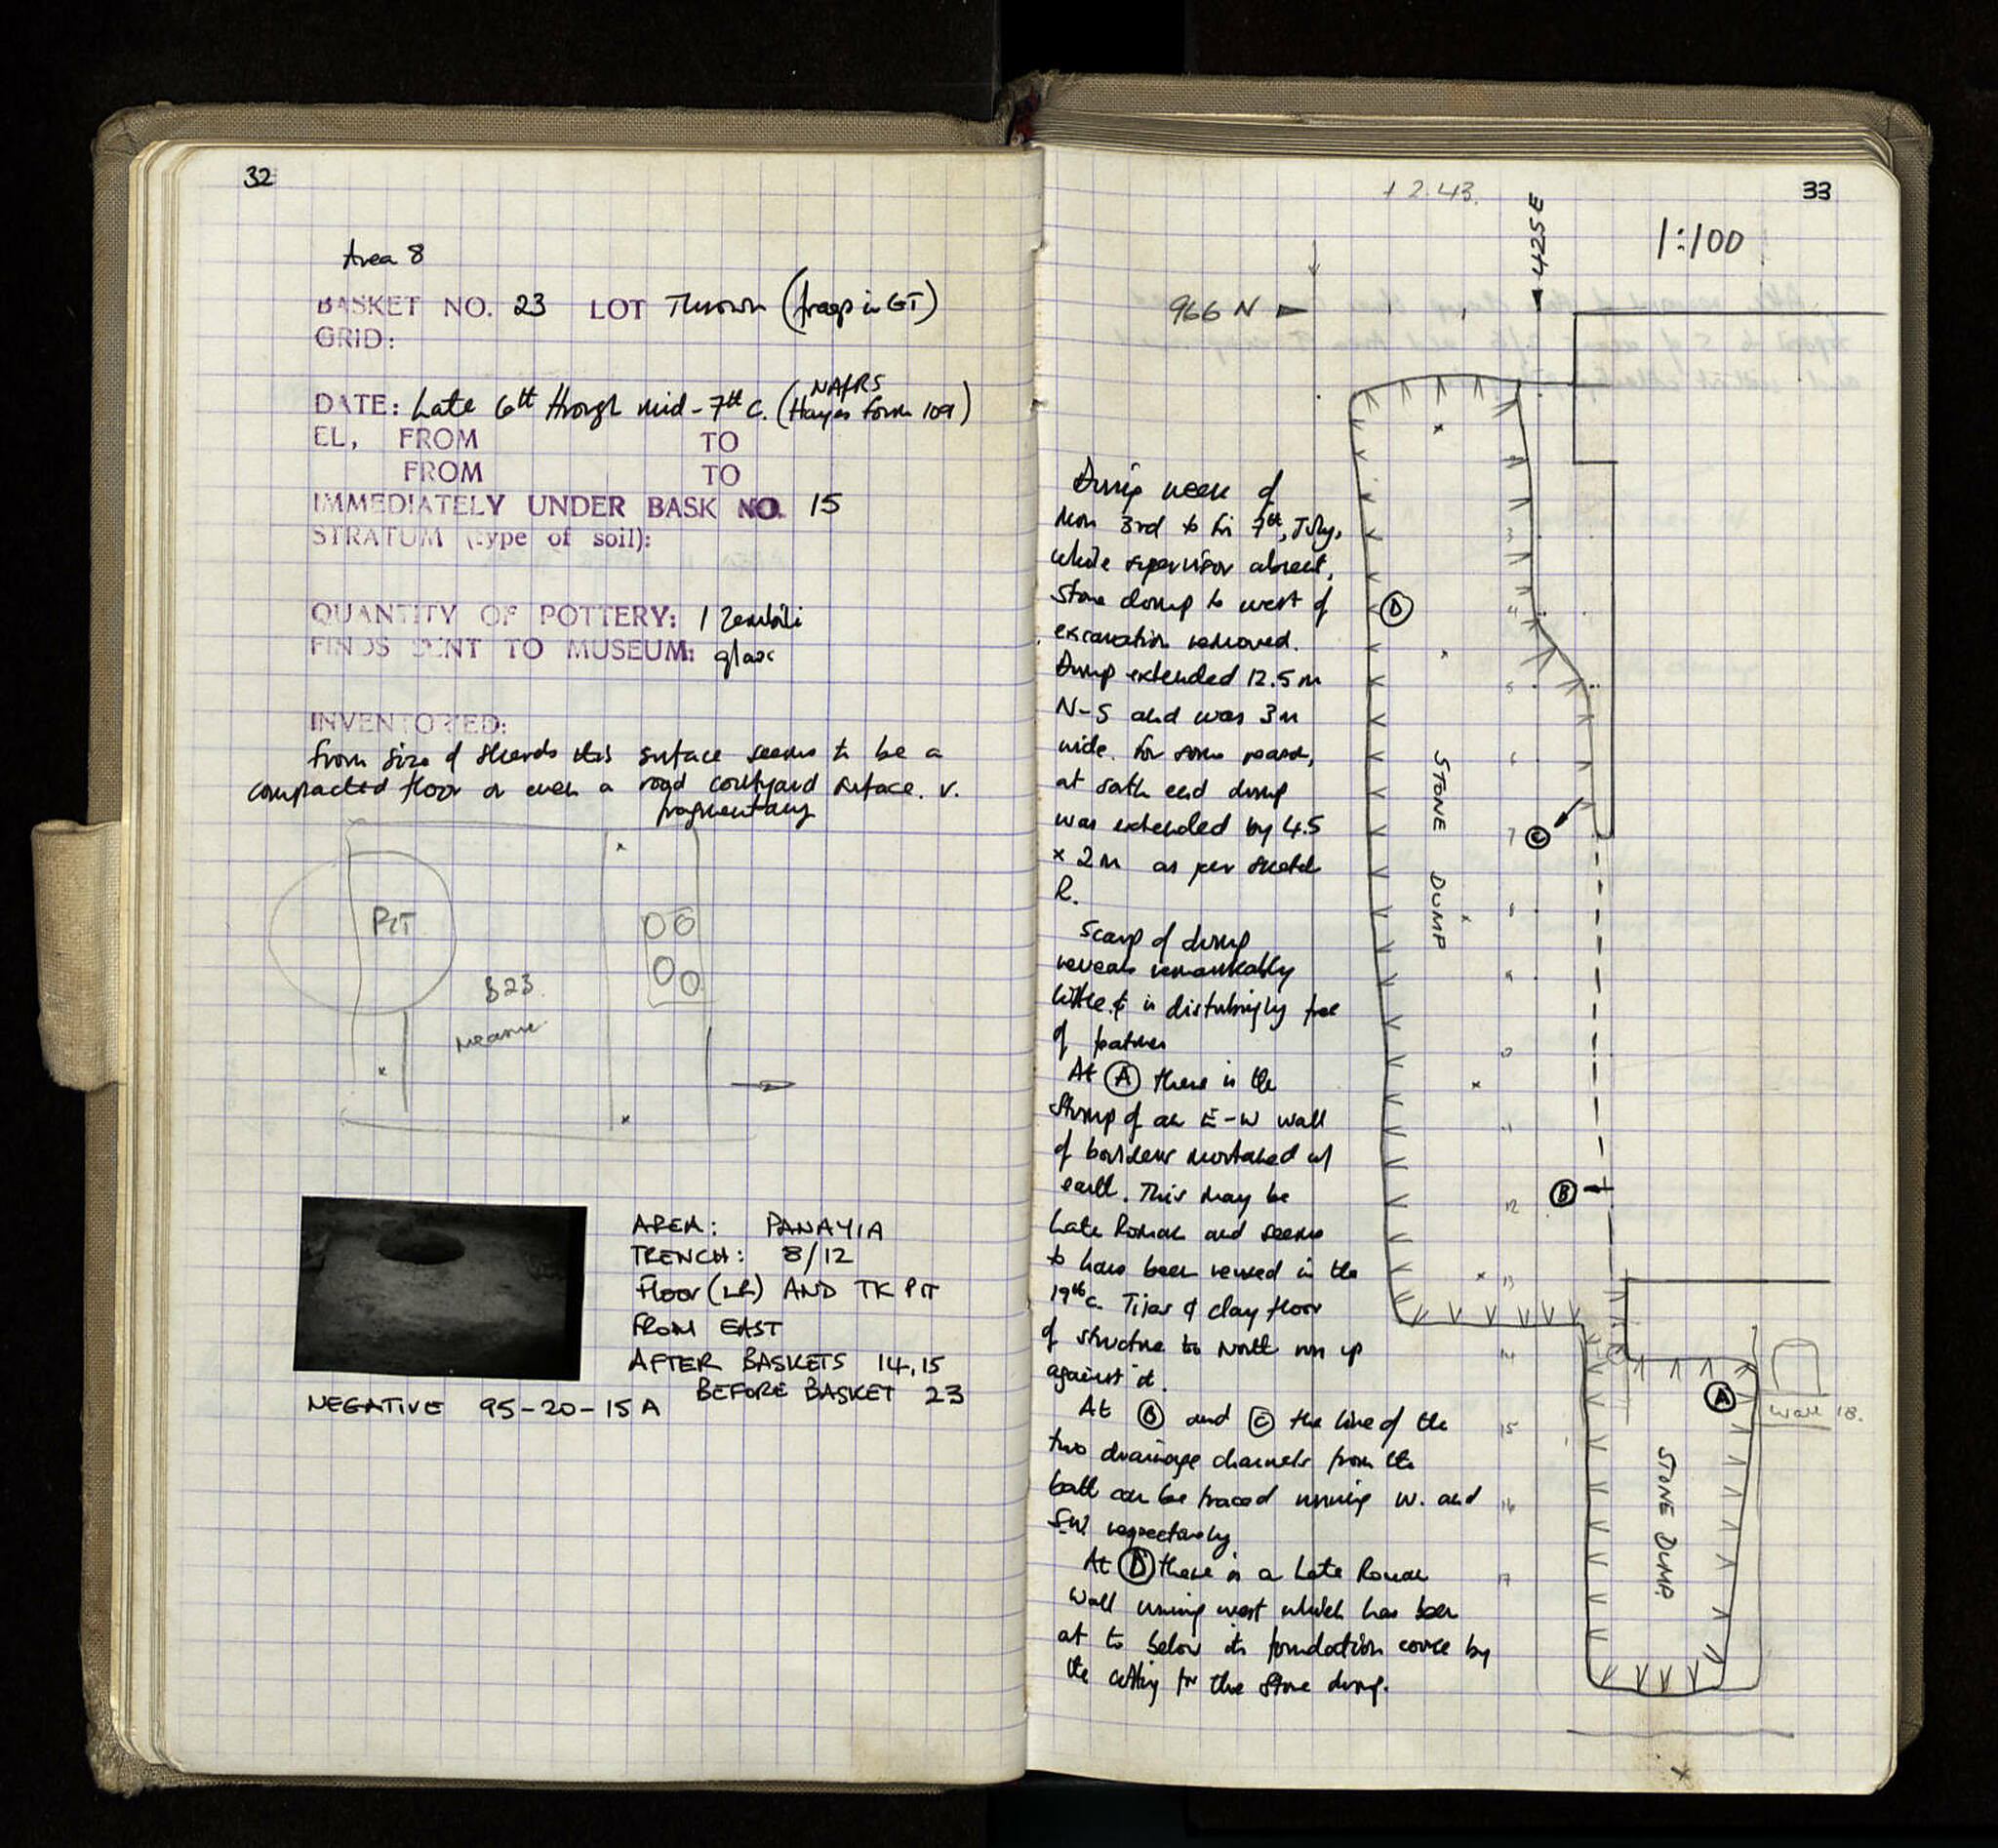 32
Area 8
BASKET NO. 23 LOT Thrown (frags in GT)
GRID:
NAfRS
DATE: Late 6th through mid-7th c. (Hayes form 109)
EL, FROM TO
FROM TO
IMMEDIATELY UNDER BASK NO. 15
STRATUM (type of soil):
QUANTITY OF POTTERY: 1 Zembili
FINDS SENT TO MUSEUM: glass
INVENTORIED:
From size of sherds this surface seems to be a
compacted floor or even a road courtyard surface. v.
fragmentary
PIT
B23
AREA: PANAYIA
TRENCH: 8/12
Floor (LR) AND TK PIT
FROM EAST
AFTER BASKETS 14,15
BEFORE BASKET 23
NEGATIVE 95-20-15A
33
+ 2.43.
425E
1:100
966 N
During week of
Mon 3rd to Fri 7th, July,
while supervisor absent,
Stone dump to west of
excavation removed.
Dump extended 12.5m
N-S and was 3m
wide. For some reason,
at south end dump
was extended by 4.5
x 2m as per sketch
R.
Scarp of dump
reveals remarkably
little & is disturbingly free
of
At A there is the
Stump of an E-W wall
of boulders mortared w/
earth. This may be
Late Roman and seems
to have been reused in the
19th c. Tiles & clay floor
of structure to North run up
against it.
At B and C the line of the
two drainage channels from the
bath can be traced running W. and
SW respectively
At D there is a Late Roman
Wall running west which has been
at to below its foundation course by
the cutting for the stone dump.
D
STONE DUMP
3
4
5
6
7
C
8
9
0
11
12
B
13
14
15
16
17
A
Wall 18.
STONE DUMP